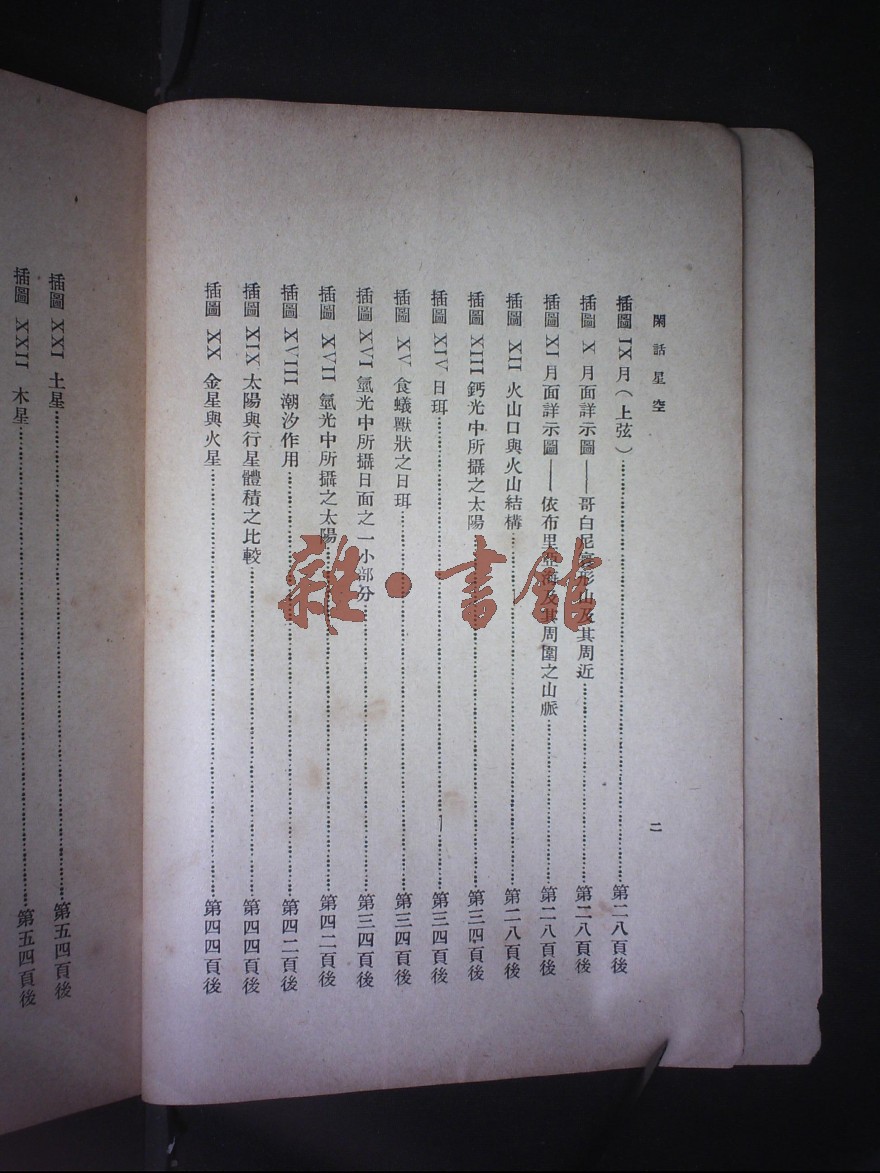 閑話星空
二
插圖 IX 月（上弦）…………第二八頁後
插圖 X 月面詳示圖——哥白尼環形山及其周近…………第二八頁後
插圖 XI 月面詳示圖——依布里亞海及其周圍之山脈…………第二八頁後
插圖 XII 火山口與火山結構…………第二八頁後
插圖 XIII 鈣光中所攝之太陽…………第三四頁後
插圖 XIV 日珥…………第三四頁後
插圖 XV 食蟻獸狀之日珥…………第三四頁後
插圖 XVI 氫光中所攝日面之一小部分…………第三四頁後
插圖 XVII 氫光中所攝之太陽…………第四二頁後
插圖 XVIII 潮汐作用…………第四二頁後
插圖 XIX 太陽與行星體積之比較…………第四四頁後
插圖 XX 金星與火星…………第四四頁後
插圖 XXI 土星…………第五四頁後
插圖 XXII 木星…………第五四頁後
雜·書館